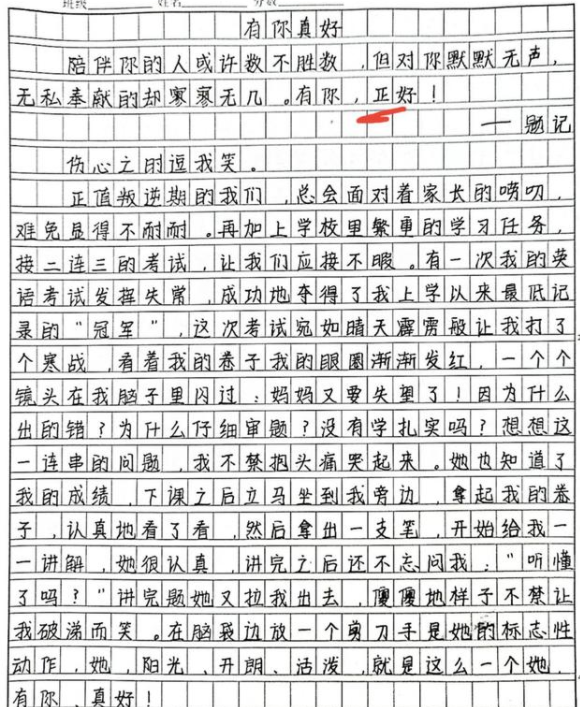 班级 姓名 分数
有你真好
陪伴你的人或许数不胜数，但对你默默无声，
无私奉献的却寥寥无几。有你，正好！
——题记
伤心之时逗我笑。
正值叛逆期的我们，总会面对着家长的唠叨，
难免显得不耐耐。再加上学校里繁重的学习任务，
接二连三的考试，让我们应接不暇。有一次我的英
语考试发挥失常，成功地夺得了我上学以来最低记
录的“冠军”，这次考试宛如晴天霹雳般让我打了
个寒战，看着我的卷子我的眼圈渐渐发红，一个个
镜头在我脑子里闪过：妈妈又要失望了！因为什么
出的错？为什么仔细审题？没有学扎实吗？想想这
一连串的问题，我不禁抱头痛哭起来。她也知道了
我的成绩，下课之后立马坐到我旁边，拿起我的卷
子，认真地看了看，然后拿出一支笔，开始给我一
一讲解，她很认真，讲完之后还不忘问我：“听懂
了吗？”讲完题她又拉我出去，傻傻地样子不禁让
我破涕而笑。在脑袋边放一个剪刀手是她的标志性
动作，她，阳光、开朗、活泼，就是这么一个她，
有你，真好！